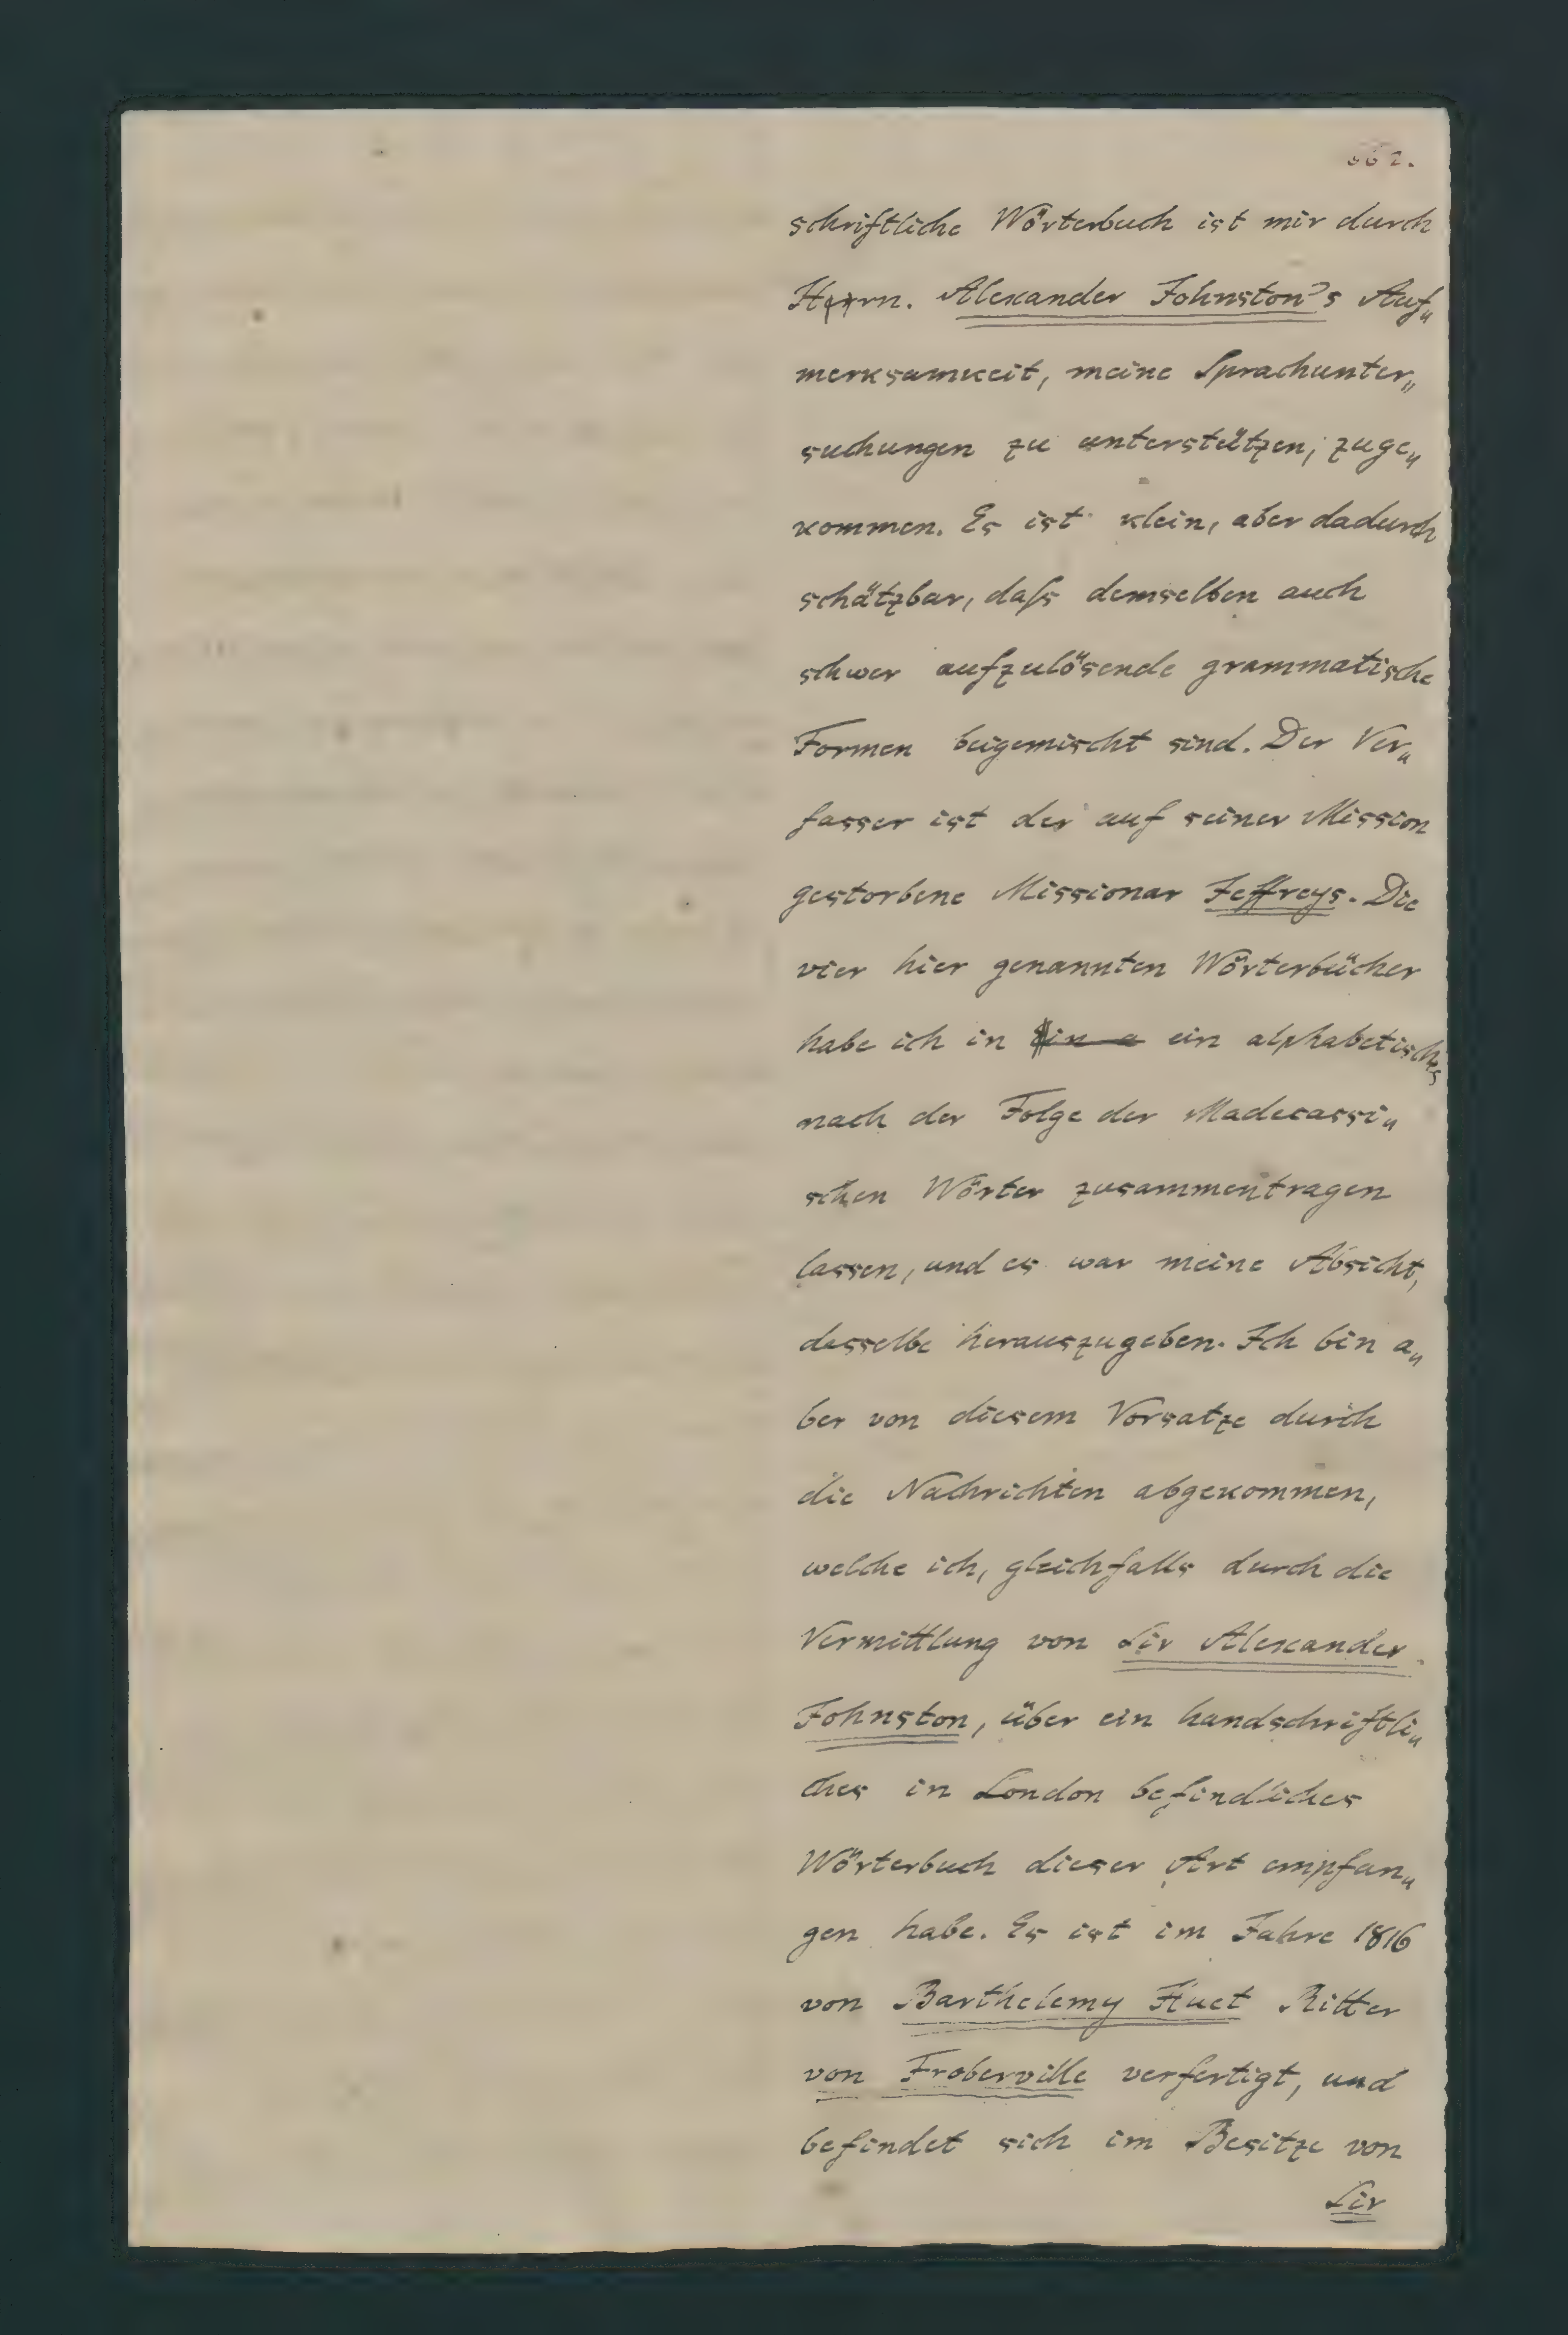 562.
schriftliche Wörterbuch ist mir durch
Herrn. Alexander Johnston's Auf„
merksamkeit, meine Sprachunter„
suchungen zu unterstützen, zuge„
kommen. Es ist klein, aber dadurch
schätzbar, daſs demselben auch
schwer aufzulösende grammatische
Formen beigemischt sind. Der Ver„
fasser ist der auf seiner Mission
gestorbene Missionar Jeffreys. Die
vier hier genannten Wörterbücher
habe ich in ein alphabetisches
nach der Folge der Madecassi„
schen Wörter zusammentragen
lassen, und es war meine Absicht,
dasselbe herauszugeben. Ich bin a„
ber von diesem Vorsatze durch
die Nachrichten abgekommen,
welche ich, gleichfalls durch die
Vermittlung von Sir Alexander
Johnston, über ein handschriftli„
ches in London befindliches
Wörterbuch dieser Art empfan„
gen habe. Es ist im Jahre 1816
von Barthelemy Huet Ritter
von Froberville verfertigt, und
befindet sich im Besitze von
Sir